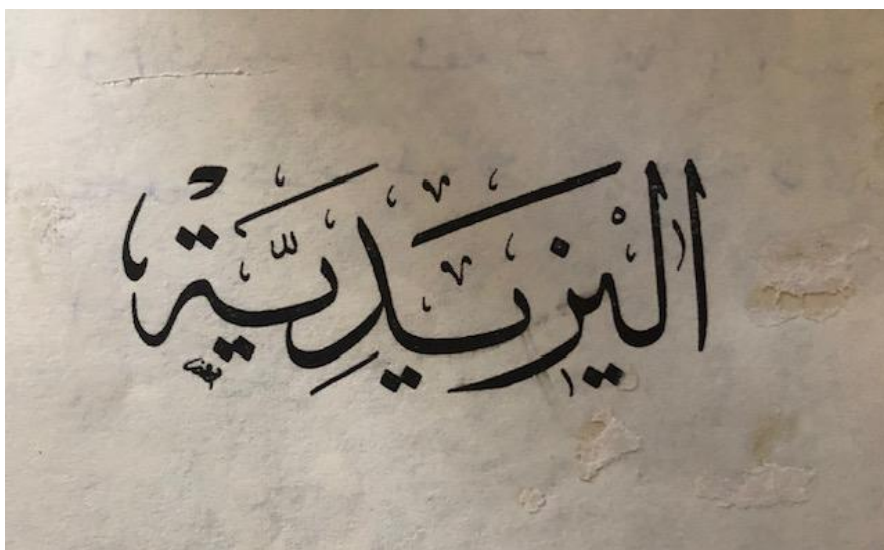 اليزيديّة